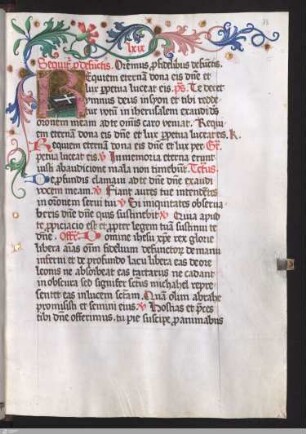 lxix
Sequit̄ p̄ defūctis. Oremus, p̄ fidelibus defūctis.
Requiem eternā dona eis dn̄e et
lux p̄petua luceat eis. ps̄. Te decet
ymnus deus in syon et tibi redde
tur votū in iherusalem exaudi
orōnem meam ad te omīs caro veniat. Requi
em eternā dona eis dn̄e et lux p̄petua luceat eis. K.
Requiem eternā dona eis dn̄e et lux per Gr̄.
petua luceat eis. v In memoria eterna erunt
iusti ab audicione mala non timebūt. Tctus.
De p̄fundis clamaui ad te dn̄e dn̄e exaudi
vocem meam. v Fiant aures tue intendētes
in orōnem serui tui v Si iniquitates obserua
beris dn̄e dn̄e quis sustinebit v Quia apud
te p̄piciacio est et p̄pter legem tuā sustinui te
dn̄e. Offr̄. Domine ihesu xp̄e rex glorie
libera aīas om̄ fidelium defunctor̄ de manu
inferni et de profundo lacu libera eas de ore
leonis ne absorbeat eas tartarus ne cadant
in obscura sed signifer scūs michahel repre
sentet eas in lucem scām. Quā olim abrahe
promisisti et semini eius. v Hostias et p̄ces
tibi dn̄e offerimus. tu pie suscipe, p animabus